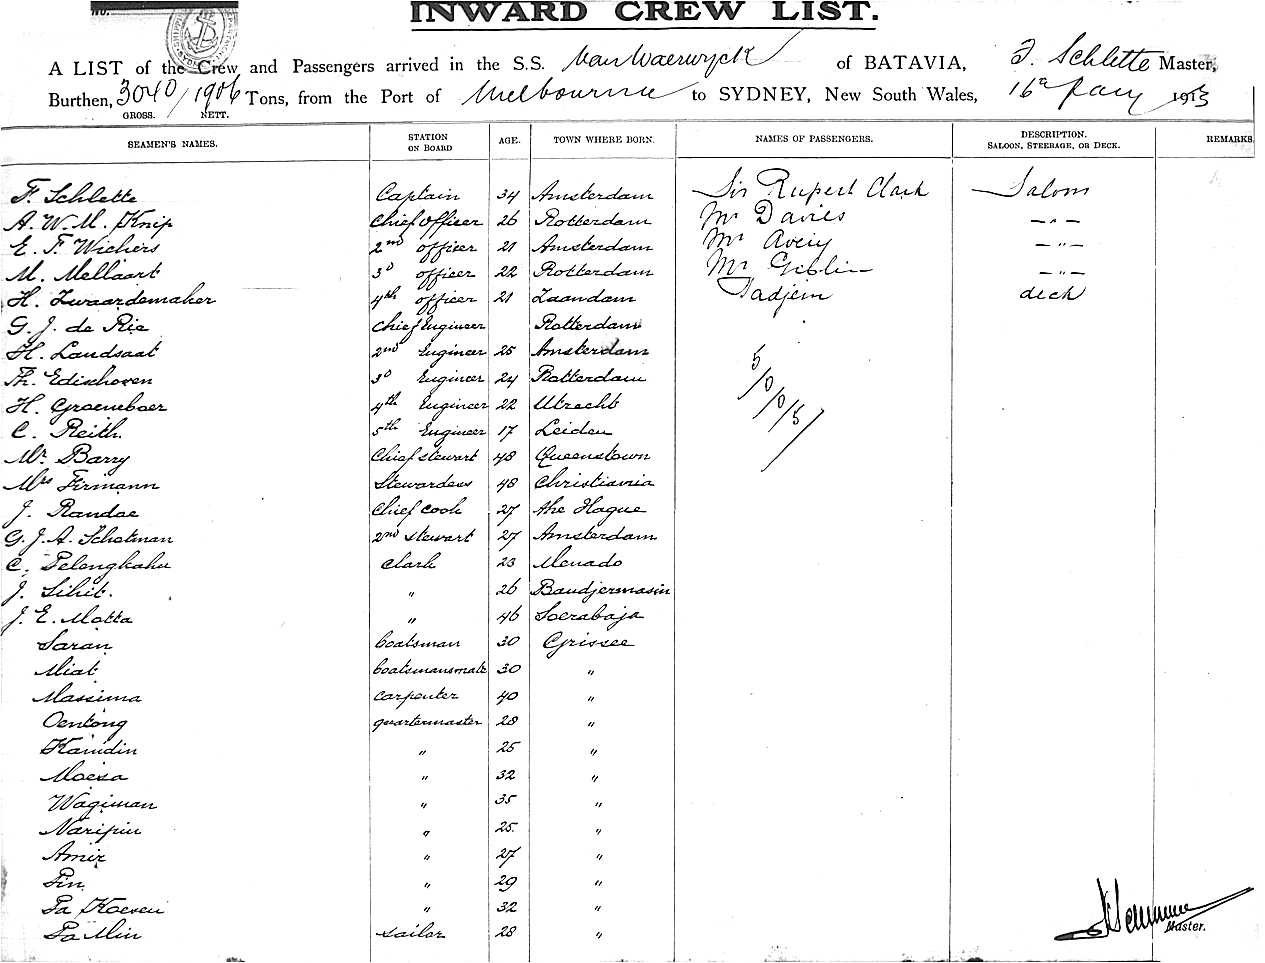 INWARD CREW LIST.
A LIST of the Crew and Passengers arrived in the S.S. Van Waerwyck of BATAVIA, F. Schlette Master,
Burthen, 3040/1906 Tons, from the Port of Melbourne to SYDNEY, New South Wales, 16th Jany 1913
GROSS. NETT.
SEAMEN'S NAMES. STATION ON BOARD AGE. TOWN WHERE BORN. NAMES OF PASSENGERS. DESCRIPTION. SALOON, STEERAGE, OR DECK. REMARKS.
F. Schlette Captain 34 Amsterdam Sir Rupert Clark Saloon
A. W. M. Knip Chief Officer 26 Rotterdam Mr Davies -"-
E. F. Wichers 2nd officer 21 Amsterdam Mr Avery -"-
M. Mellaart 3d officer 22 Rotterdam Mr Giblin -"-
H. Zwaardemaker 4th officer 21 Zaandam Tadjem deck
G. J. de Rie Chief Engineer Rotterdam
H. Landsaat 2nd Engineer 25 Amsterdam
Th. Edixhoven 3d Engineer 24 Rotterdam
H. Groeneboer 4th Engineer 22 Utrecht
C. Reith. 5th Engineer 17 Leiden
Mr Barry Chief stewart 48 Queenstown
Mrs Firmann Stewardess 48 Christiania
J. Randae Chief cook 27 the Hague
G. J. A. Schotman 2nd stewart 27 Amsterdam
C. Pelengkahu Clark 23 Menado
J. Sihit. " 26 Bandjermasin
J. E. Motta " 46 Soerabaja
Saran boatsman 30 Grissee
Miat boatsmansmate 30 "
Massima carpenter 40 "
Oentong quartermaster 28 "
Kamdin " 25 "
Moesa " 32 "
Wagiman " 35 "
Naripin " 25 "
Amir " 27 "
Pin " 29 "
Pa Koesen " 32 "
Pa Min sailor 28 "
5/0/0/5/
Master.